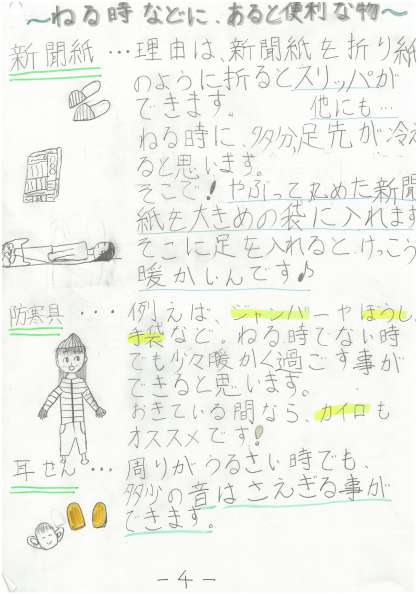 ～ねる時などに、あると便利な物～
新聞紙…理由は、新聞紙を折り紙
のように折るとスリッパが
できます。 他にも…
ねる時に、多分、足先が冷え
ると思います。
そこで!やぶって丸めた新聞
紙を大きめの袋に入れます
そこに足を入れると、けっこう
暖かいんです♪
防寒具・・・例えば、ジャンパーやぼうし、
手袋など。ねる時でない時
でも少々暖かく過ごす事が
できると思います。
おきている間なら、カイロも
オススメです!
耳せん…周りがうるさい時でも、
多少の音はさえぎる事が
できます。
-4-